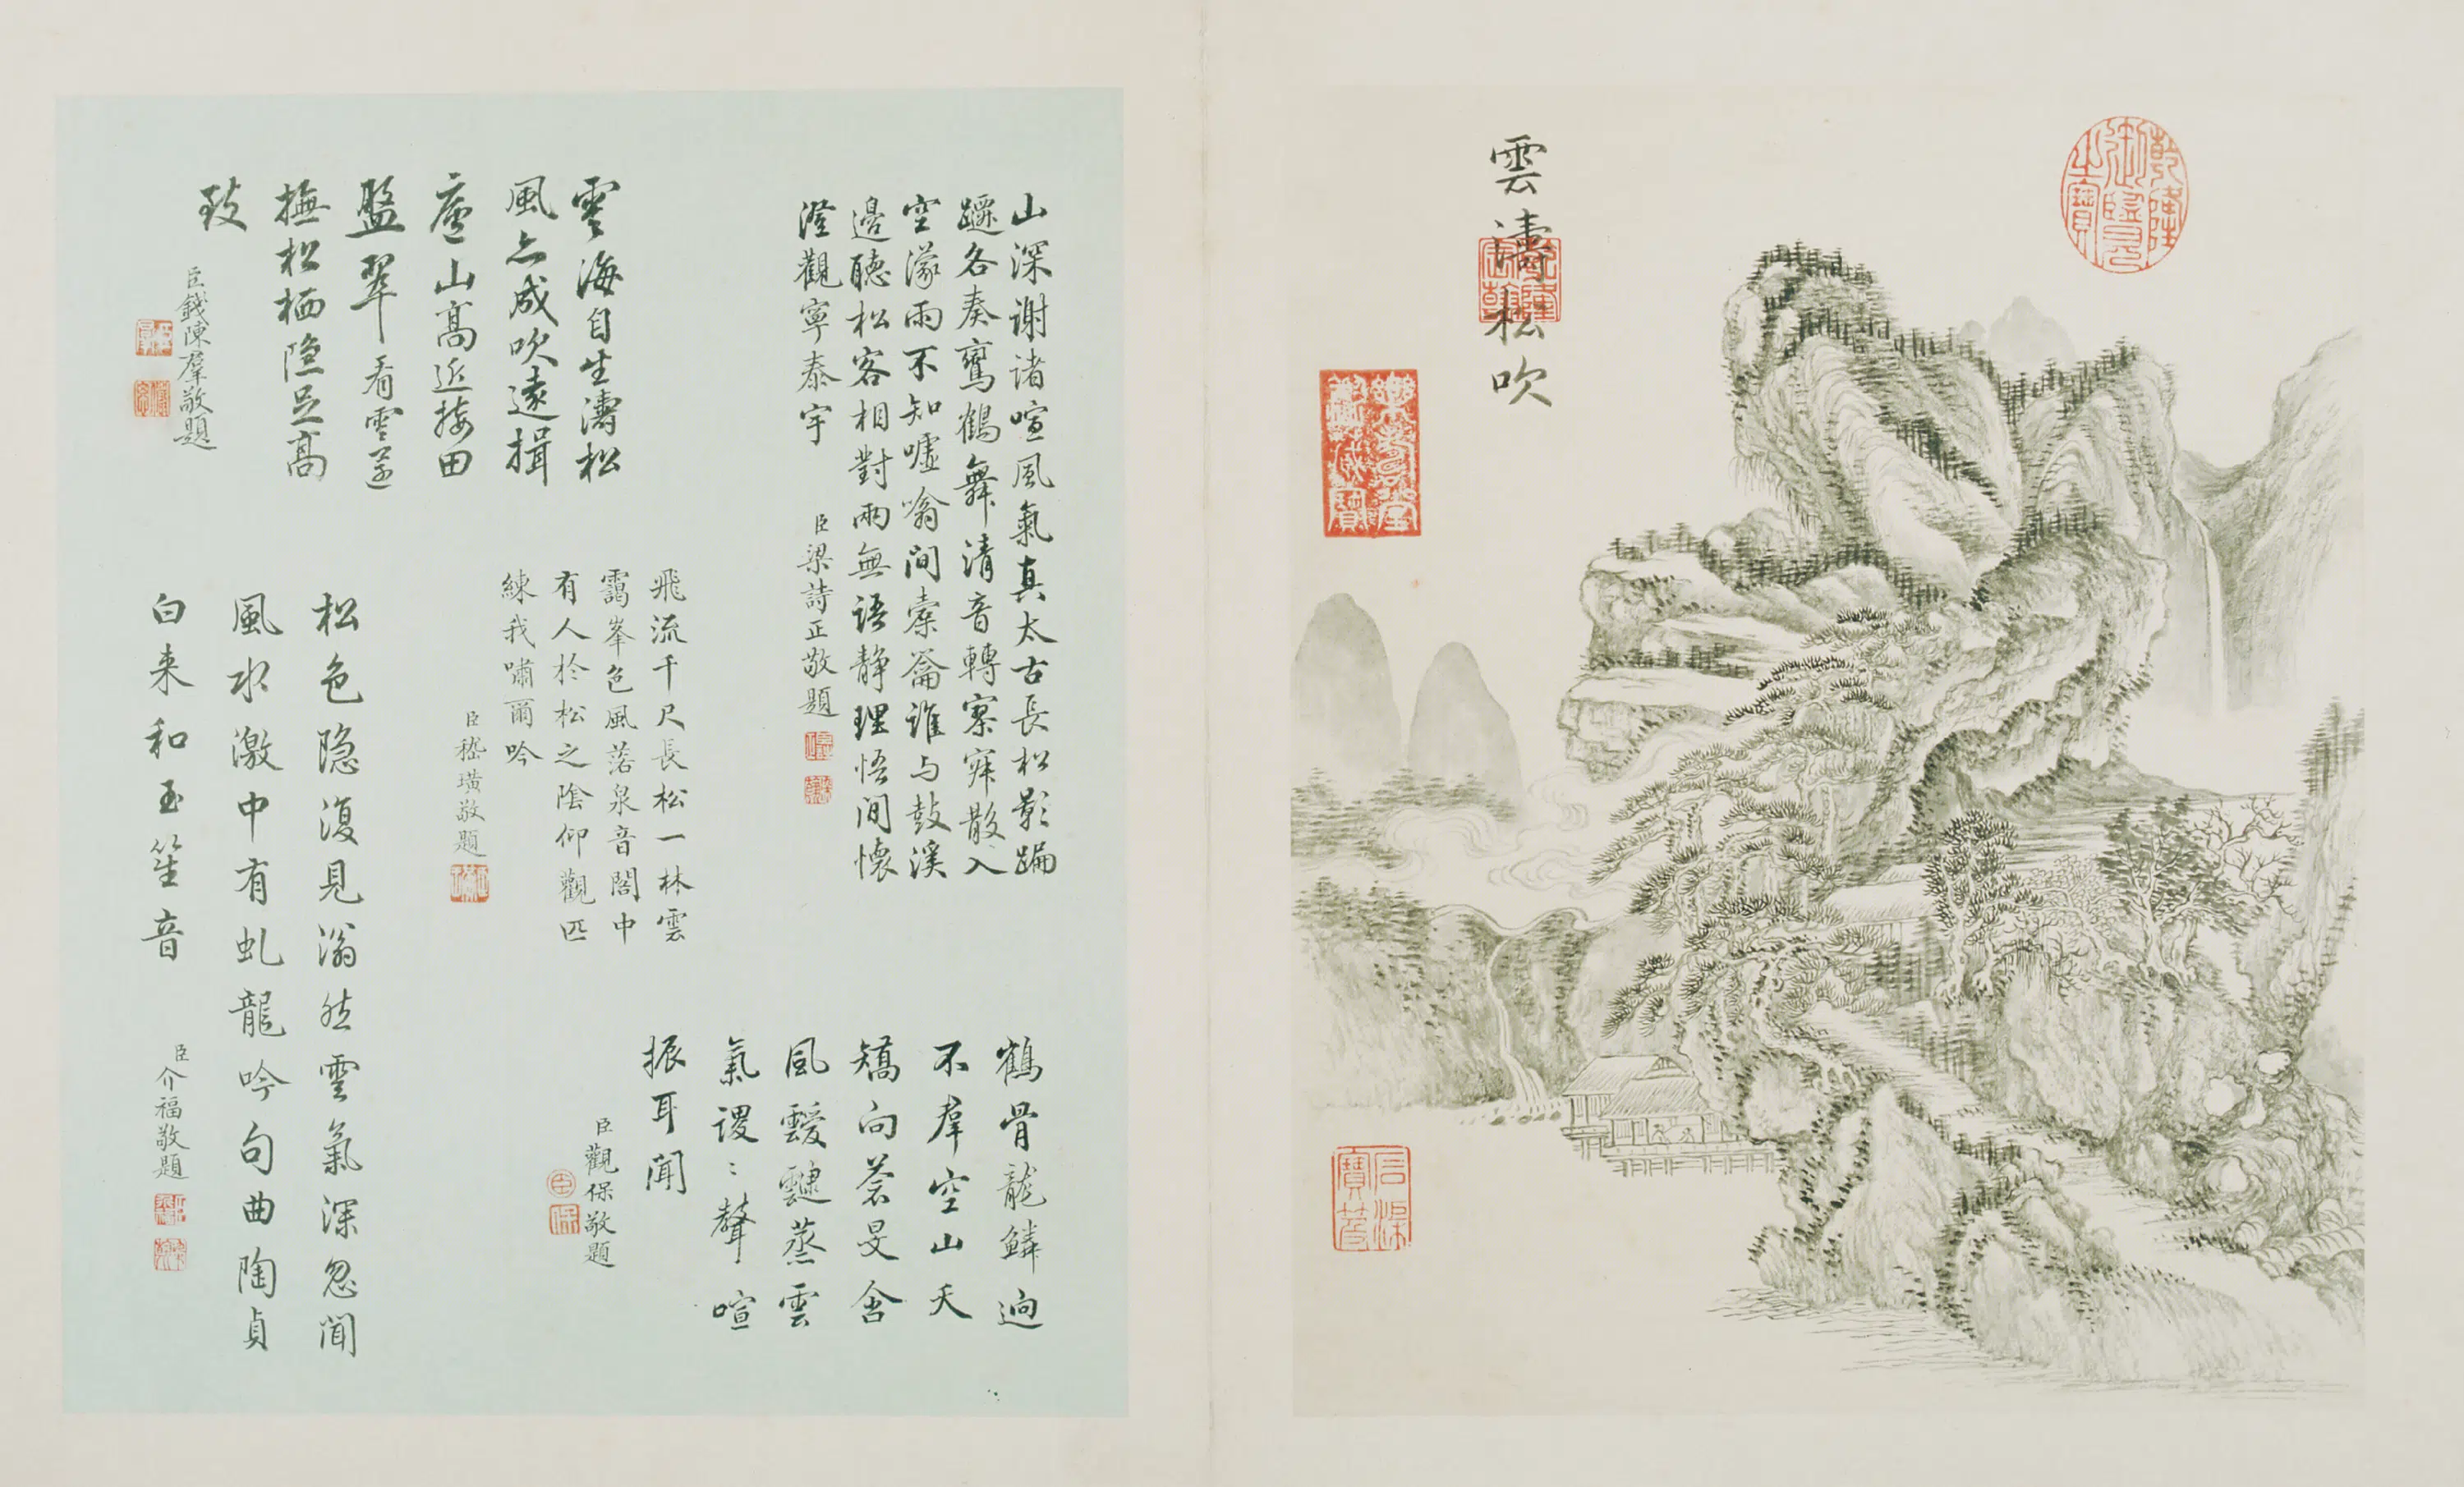 雲濤松吹
乾隆御覽之寶
乾隆宸翰
樂善堂圖書記
山深謝諸喧風氣真太古長松影蹁
躚各奏鸞鶴舞清音轉寥寀散入
空濛雨不知嘘噏間橐籥誰与鼓溪
邊聽松客相對兩無语静理悟间懷
澄觀寧泰宇
臣梁詩正敬題
雲海自生濤松
風亦成吹遠揖
廬山高近接田
盤翠看雲還
撫松栖隐足高
致
臣錢陳羣敬題
飛流千尺長松一林雲
靄峯色風落泉音閣中
有人於松之陰仰觀匹
練我嘯爾吟
臣嵇璜敬題
鶴骨龍鱗迥
不羣空山夭
矯向蒼旻含
風靉靆蒸雲
氣謖〻聲喧
振耳聞
臣觀保敬題
松色隐復見滃然雲氣深忽聞
風水激中有虬龍吟句曲陶貞
白来和玉笙音
臣介福敬題